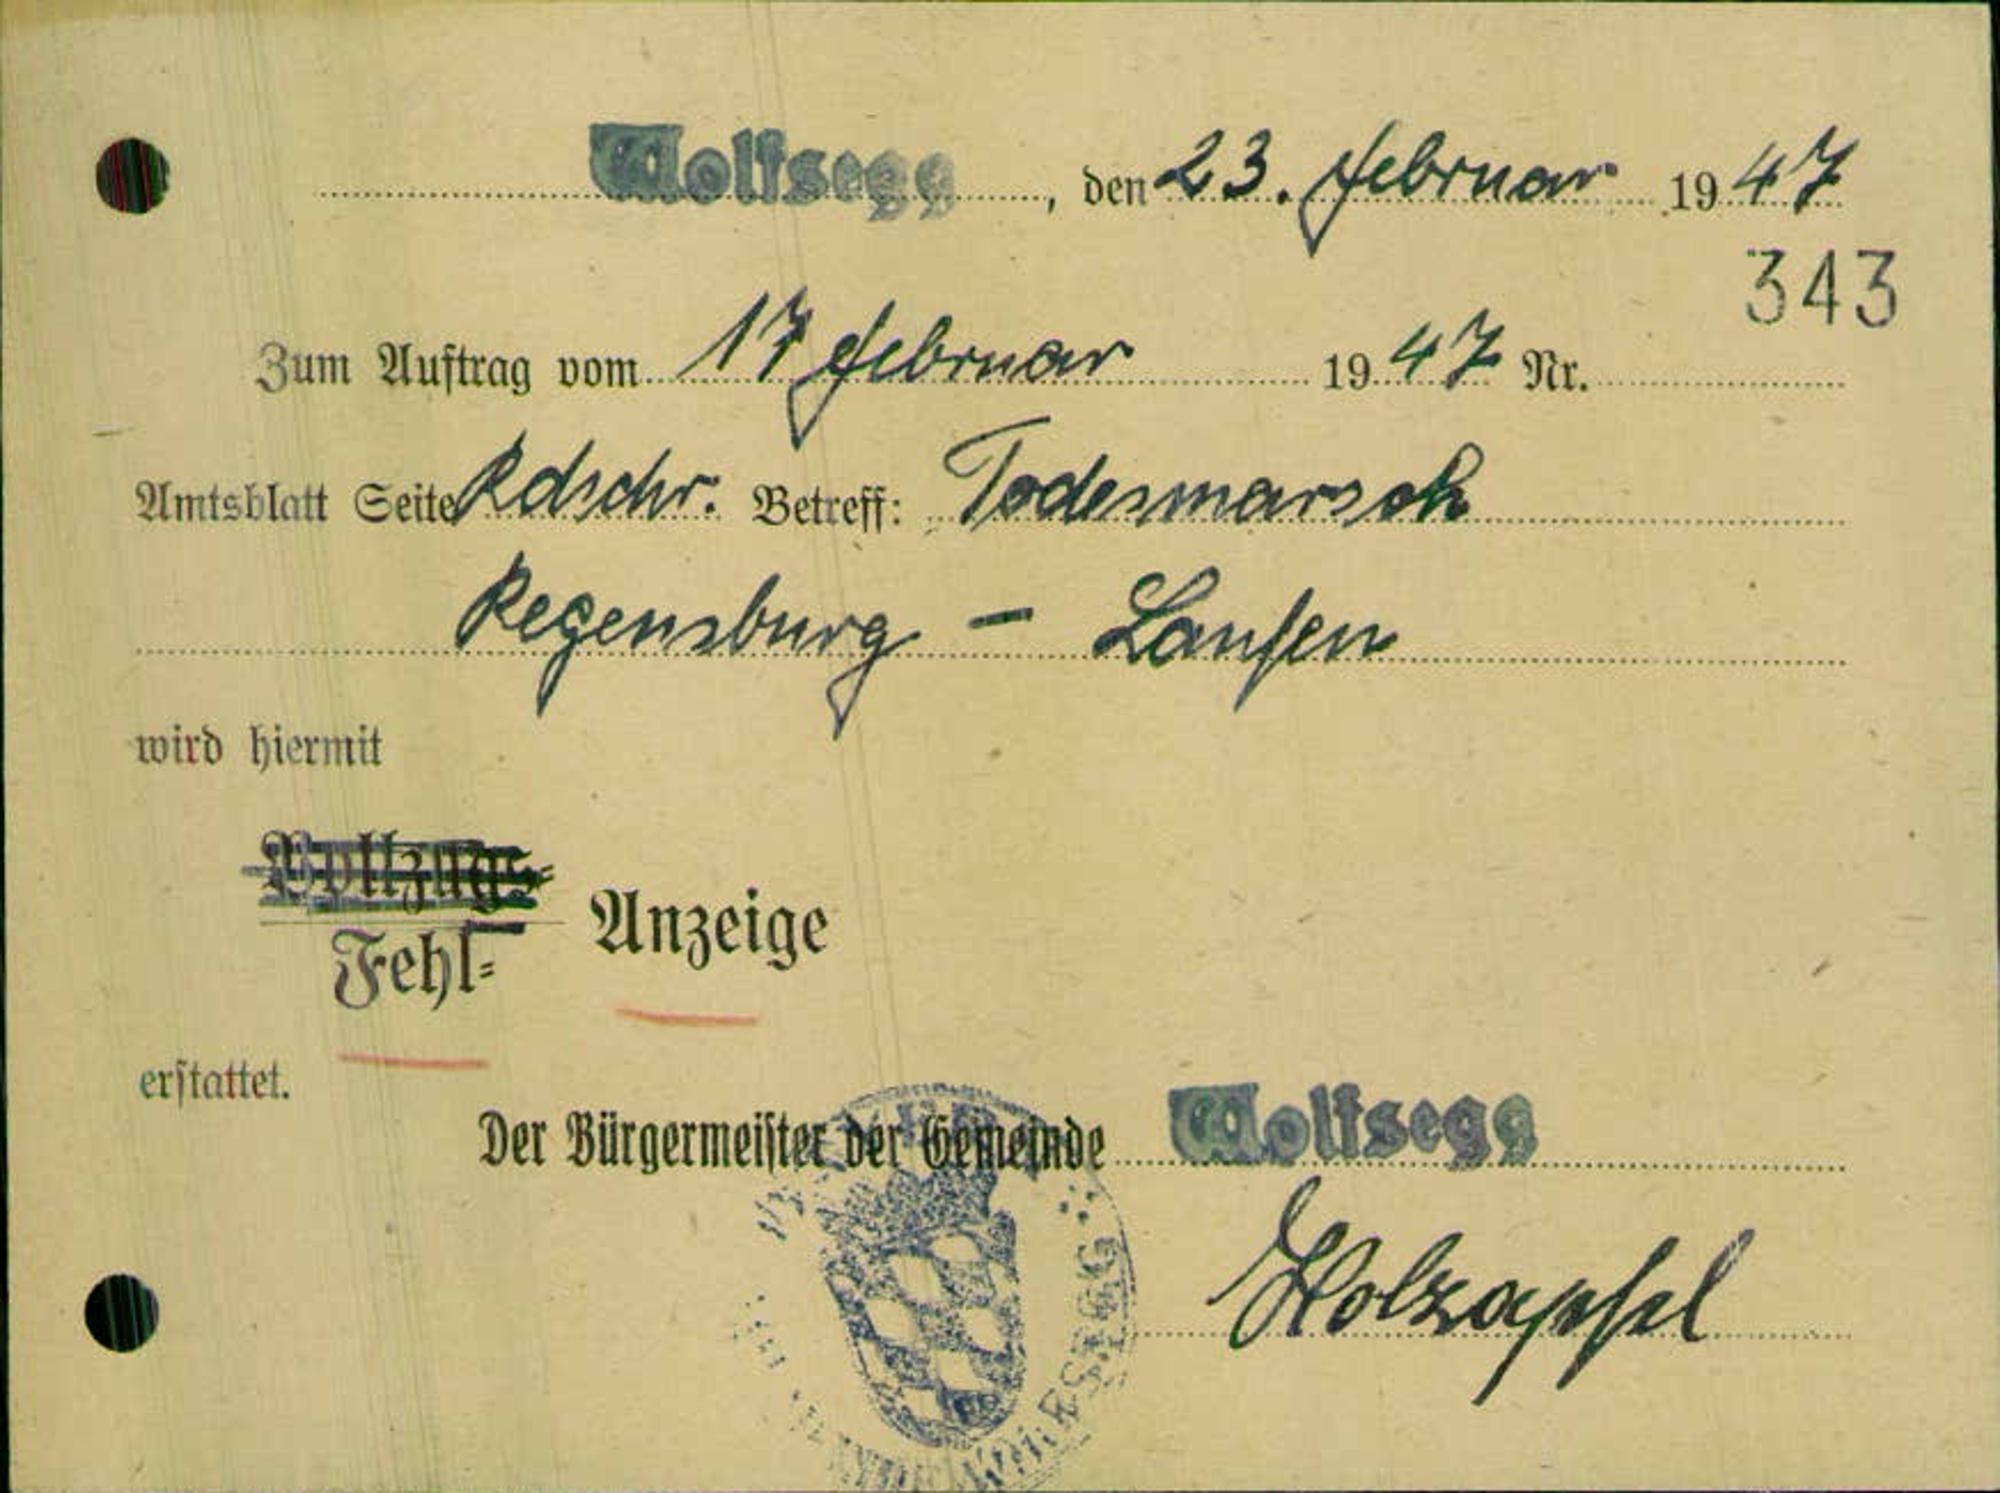 Wolfsegg, den 23. Februar 1947
343
Zum Auftrag vom 17 Februar 1947 Nr.
Amtsblatt Seite Rdschr. Betreff: Todesmarsch
Regensburg – Laufen
wird hiermit
Vollzugs=
Fehl= Anzeige
erstattet.
Der Bürgermeister der Gemeinde Wolfsegg
Holzapfel